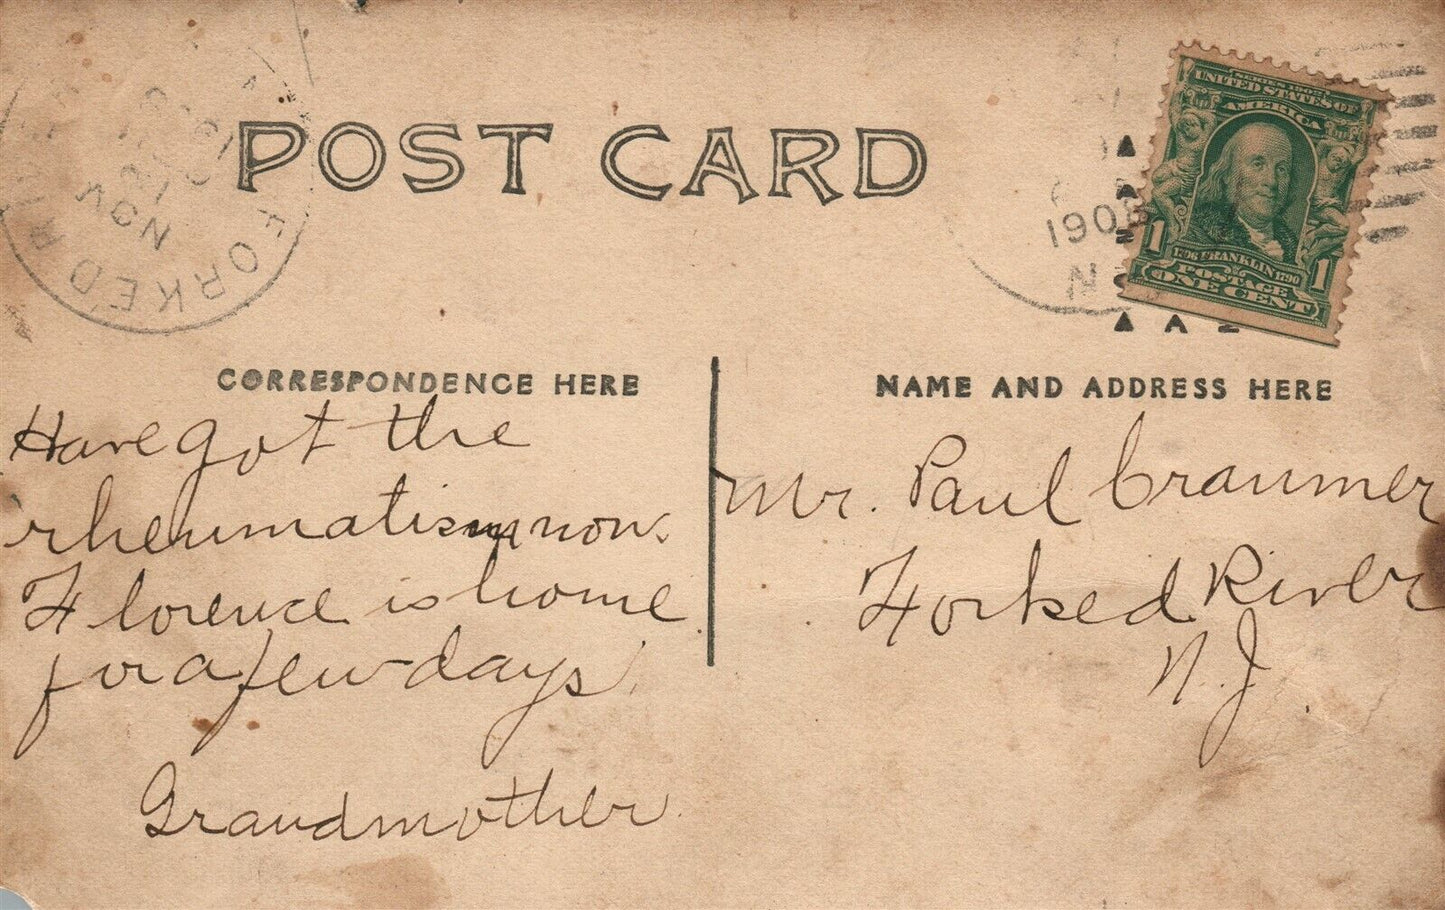 POST CARD
FORKED RIVER
NOV
1908
N
SERIES 1902
UNITED STATES OF
AMERICA
1 1
1706 FRANKLIN 1790
POSTAGE
ONE CENT
CORRESPONDENCE HERE
NAME AND ADDRESS HERE
Have got the
rheumatism now.
Florence is home
for a few days
Grandmother
Mr. Paul Cranmer
Forked River
N.J.